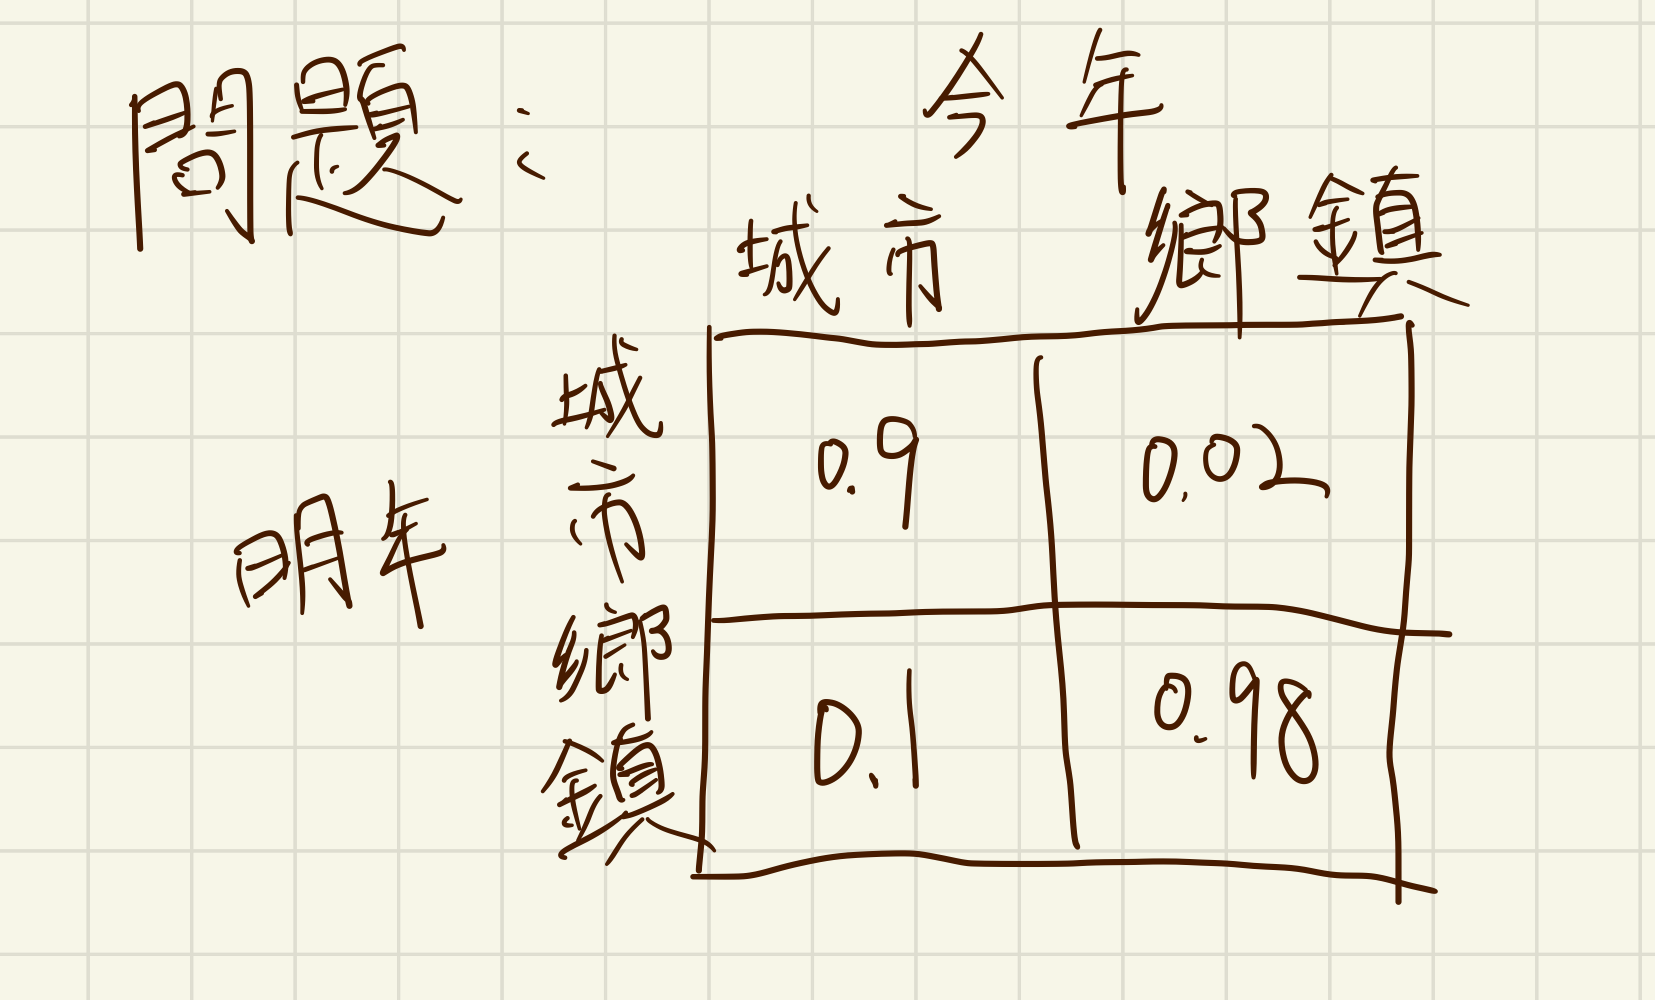 問題：
今年
城市 鄉鎮
城市 0.9 0.02
明年
鄉鎮 0.1 0.98